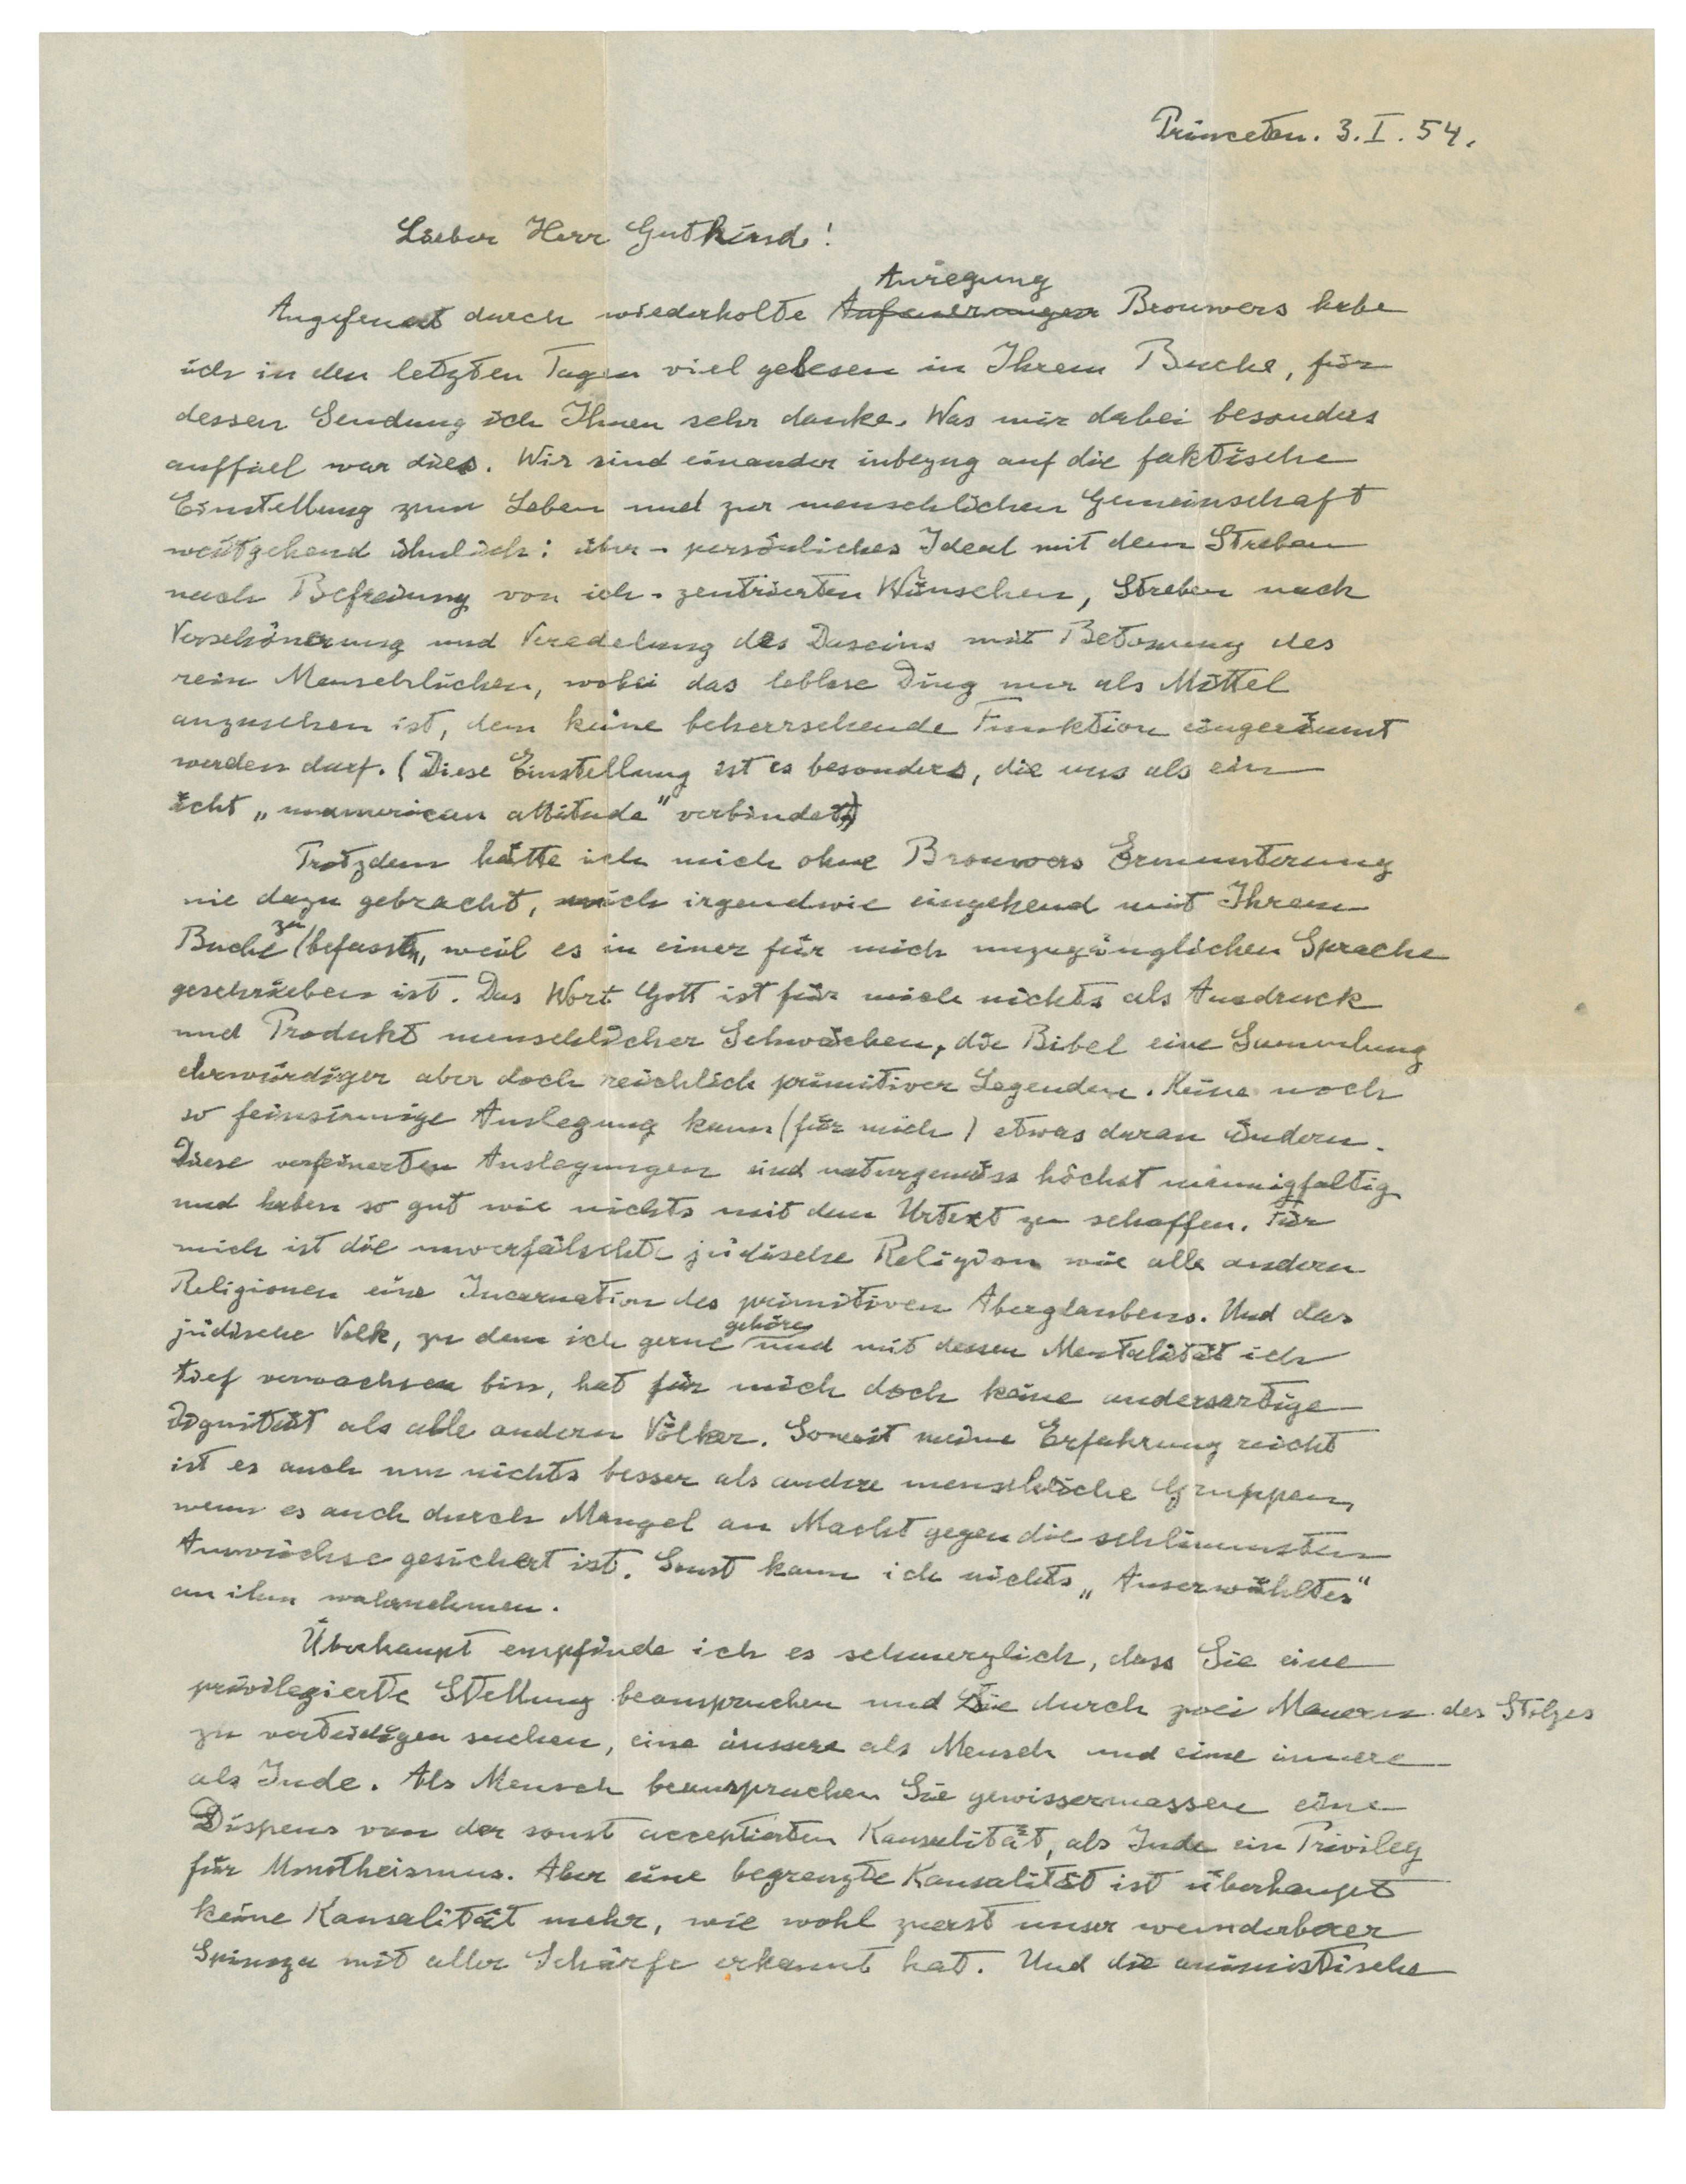 Princeton. 3. I. 54.
Lieber Herr Gutkind!
Anregung
Angefeuert durch wiederholte Anfeuerungen Brouwers habe
ich in den letzten Tagen viel gelesen in Ihrem Buche, für
dessen Sendung ich Ihnen sehr danke. Was mir dabei besonders
auffiel war dies. Wir sind einander inbezug auf die faktische
Einstellung zum Leben und zur menschlichen Gemeinschaft
weitgehend ähnlich: über-persönliches Ideal mit dem Streben
nach Befreiung von ich-zentrierten Wünschen, Streben nach
Verschönerung und Veredelung des Daseins mit Betonung des
rein Menschlichen, wobei das leblose Ding nur als Mittel
anzusehen ist, dem keine beherrschende Funktion eingeräumt
werden darf. (Diese Einstellung ist es besonders, die uns als ein
echt „unamerican attitude" verbindet.)
Trotzdem hätte ich mich ohne Brouwers Ermunterung
nie dazu gebracht, mich irgendwie eingehend mit Ihrem
Buche zu befassen, weil es in einer für mich unzugänglichen Sprache
geschrieben ist. Das Wort Gott ist für mich nichts als Ausdruck
und Produkt menschlicher Schwächen, die Bibel eine Sammlung
ehrwürdiger aber doch reichlich primitiver Legenden. Keine noch
so feinsinnige Auslegung kann (für mich) etwas daran ändern.
Diese verfeinerten Auslegungen sind naturgemäss höchst mannigfaltig
und haben so gut wie nichts mit dem Urtext zu schaffen. Für
mich ist die unverfälschte jüdische Religion wie alle andern
Religionen eine Incarnation des primitiven Aberglaubens. Und das
jüdische Volk, zu dem ich gerne gehöre und mit dessen Mentalität ich
tief verwachsen bin, hat für mich doch keine andersartige
Dignität als alle andern Völker. Soweit meine Erfahrung reicht
ist es auch um nichts besser als andere menschliche Gruppen,
wenn es auch durch Mangel an Macht gegen die schlimmsten
Auswüchse gesichert ist. Sonst kann ich nichts „Auserwähltes"
an ihm wahrnehmen.
Überhaupt empfinde ich es schmerzlich, dass Sie eine
privilegierte Stellung beanspruchen und sie durch zwei Mauern des Stolzes
zu verteidigen suchen, eine äussere als Mensch und eine innere
als Jude. Als Mensch beanspruchen Sie gewissermassen eine
Dispens von der sonst acceptierten Kausalität, als Jude ein Privileg
für Monotheismus. Aber eine begrenzte Kausalität ist überhaupt
keine Kausalität mehr, wie wohl zuerst unser wunderbarer
Spinoza mit aller Schärfe erkannt hat. Und die animistische